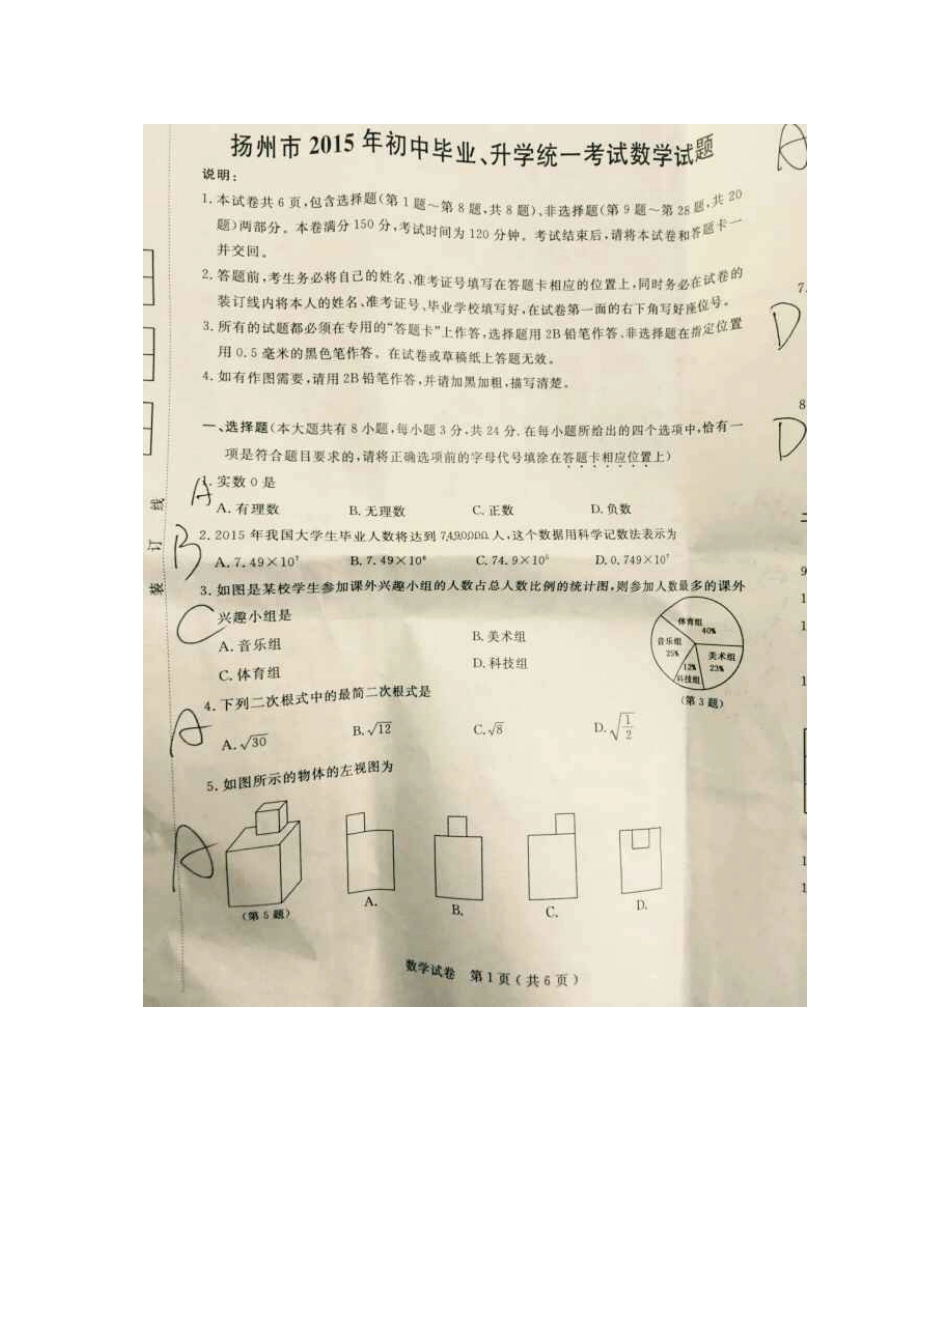 扬州市 2015 年初中毕业、升学统一考试数学试题
说明：
1. 本试卷共 6 页,包含选择题(第 1 题～第 8 题,共 8 题)、非选择题(第 9 题～第 28 题,共 20
题)两部分。本卷满分 150 分,考试时间为 120 分钟。考试结束后,请将本试卷和答题卡一
并交回。
2. 答题前,考生务必将自己的姓名、准考证号填写在答题卡相应的位置上,同时务必在试卷的
装订线内将本人的姓名、准考证号、毕业学校填写好,在试卷第一面的右下角写好座位号。
3. 所有的试题都必须在专用的“答题卡”上作答,选择题用 2B 铅笔作答、非选择题在指定位置
用 0.5 毫米的黑色笔作答。在试卷或草稿纸上答题无效。
4. 如有作图需要,请用 2B 铅笔作答,并请加黑加粗,描写清楚。
一、选择题(本大题共有 8 小题,每小题 3 分,共 24 分.在每小题所给出的四个选项中,恰有一
项是符合题目要求的,请将正确选项前的字母代号填涂在答题卡相应位置上)
A 1. 实数 0 是
A. 有理数 B. 无理数 C. 正数 D. 负数
B 2. 2015 年我国大学生毕业人数将达到 7490000 人,这个数据用科学记数法表示为
A. 7.49×10⁷ B. 7.49×10⁶ C. 74.9×10⁵ D. 0.749×10⁷
3. 如图是某校学生参加课外兴趣小组的人数占总人数比例的统计图,则参加人数最多的课外
C 兴趣小组是
A. 音乐组 B. 美术组
C. 体育组 D. 科技组
体育组
40%
音乐组
25%
美术组
23%
12%
科技组
(第 3 题)
4. 下列二次根式中的最简二次根式是
A
A. √30 B. √12 C. √8 D. √(1/2)
5. 如图所示的物体的左视图为
A
(第 5 题) A. B. C. D.
数学试卷 第 1 页(共 6 页)
线
订
装
A
7.
D
8
D
9
1
1
1
1
1